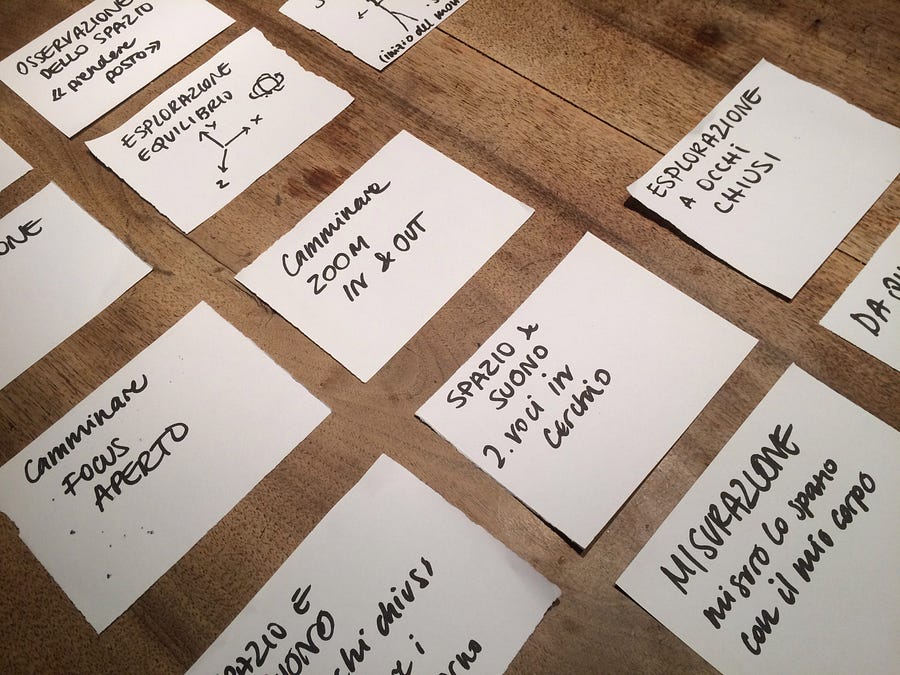 OSSERVAZIONE
DELLO SPAZIO
«prendere
posto»
(inizio del mov
ESPLORAZIONE
EQUILIBRIO
Y
X
Z
ESPLORAZIONE
A OCCHI
CHIUSI
Camminare
ZOOM
IN & OUT
ONE
DA
SPAZIO &
SUONO
2. voci in
cerchio
Camminare
FOCUS
APERTO
MISURAZIONE
misuro lo spazio
con il mio corpo
AZIO E
UONO
chi chiusi
e i
erno